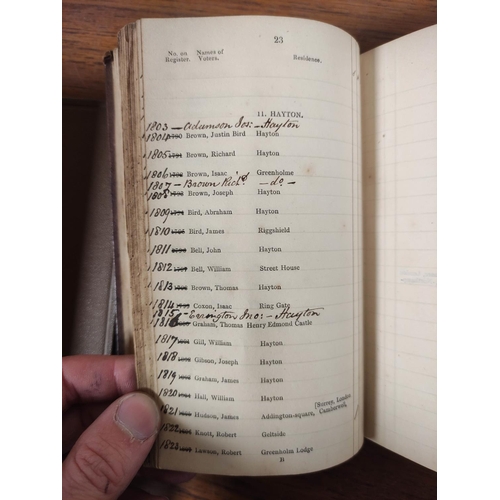 23
No. on Names of
Register. Voters. Residence.
11. HAYTON.
1803 — Adamson Jos: — Hayton
1804 Brown, Justin Bird Hayton
1805 Brown, Richard Hayton
1806 Brown, Isaac Greenholme
1807 — Brown Rich'd. — do —
1808 Brown, Joseph Hayton
1809 Bird, Abraham Hayton
1810 Bird, James Riggshield
1811 Bell, John Hayton
1812 Bell, William Street House
1813 Brown, Thomas Hayton
1814 Coxon, Isaac Ring Gate
1815 — Errington Jno: — Hayton
1816 Graham, Thomas Henry Edmond Castle
1817 Gill, William Hayton
1818 Gibson, Joseph Hayton
1819 Graham, James Hayton
1820 Hall, William Hayton
[Surrey, London
1821 Hudson, James Addington-square, Camberwell,
1822 Knott, Robert Geltside
1823 Lawson, Robert Greenholm Lodge
B